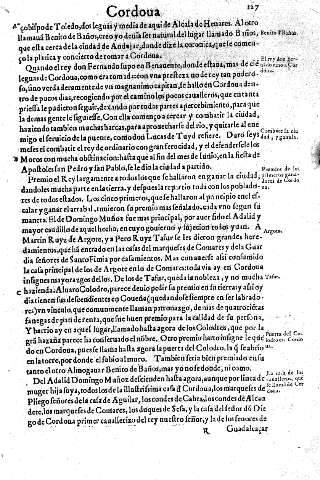 Cordoua
127
çobispo de Toledo, dos leguas y media de aqui de Alcala de Henares. Al otro
llamauã Benito de Baños, creo yo deuia ser natural del lugar llamado Baños,
Benito ð Baños.
que esta cerca de la ciudad de Andujar, donde dize la coronica, que le comen-
ço la platica y concierto de tomar a Cordoua.
Quando el rey don Fernando supo en Benauente, donde estaua, mas de
leguas de Cordoua, como era tomada con vna presteza no de rey tan podero-
so, sino verdaderamente de vn magnanimo capitan, se hallo en Cordoua den-
tro de pocos dias, recogiendo por el camino los pocos caualleros, que con tanta
priessa le pudieron seguir, dexando por todas partes apercebimiento, para que
la demas gente le siguiesse. Con esta començo a cercar y combatir la ciudad,
haziendo tambien muchas barcas, para aprouecharse del rio, y quitarle al ene
migo el seruicio de la puente, como don Lucas de Tuy refiere. Duro seys
meses el combatir el rey de ordinario con gran ferocidad, y el defenderse los
Moros con mucha obstinacion: hasta que al fin del mes de Iunio, en la fiesta de
Apostoles san Pedro y san Pablo, se le dio la ciudad a partido.
Premio el Rey largamente a todos los que se hallaron en ganar la ciudad,
dandoles mucha parte en la tierra, y despues la repartio toda con los poblado-
res de todos estados. Los cinco primeros, que se hallaron al principio en el es-
calar y ganar el arrabal, vuieron su premio mas señalado, cada vno segun su
manera. El de Domingo Muñoz fue mas principal, por auer sido el Adalid y
mayor caudillo de aquel hecho, en cuyo gouierno y sujecion todos yuan. A
Argote.
Martin Ruyz de Argote, y a Pero Ruyz Tafur se les dieron grandes here-
damientos, que há entrado en las casas del marquesses de Comares y de la Guar
dia señores de Santofimia por casamientos. Mas con auerse assi consumido
la casa principal de los de Argote en lo de Comares: toda via ay en Cordoua
insignes mayorazgos dellos. De los de Tafur, queda la nobleza, y no mucha
Tafur.
hazienda. Aluaro Colodro, parece deuio pedir su premio en su tierra y assi oy
dia tienen sus descendientes en Coueña (quedandose siempre en ser labrado-
res) vn vinculo, que comunmente llaman patronazgo, de mas de quatrocietas
fanegas de pan de renta, que fue buen premio para la calidad de su persona,
Y barrio ay en aquel lugar, llamado hasta agora de los Colodros, que por la
gran acera parece ha conseruado el nõbre. Otro premio harto insigne le que
do en Cordoua, pues se llama hasta agora la puerta del Colodro, la ð se abrio
en la torre, por donde el subio al muro. Tambien seria bien premiado en su
tanto el otro Almogauar Benito de Baños, mas yo no se donde, ni como.
Del Adalid Domingo Muñoz descienden hasta agora, aunque por linea de
muger hija suya, todos los de la illustrissima casa ð Cordoua, los marqueses de
Pliego señores de la casa de Aguilar, los condes de Cabra, los condes de Alcau
dete, los marqueses de Comares, los duques de Sesa, y la casa del señor dõ Die
go de Cordoua primer cauallerizo del rey nuestro señor, y la de los señores de
R
Guadalcaçar